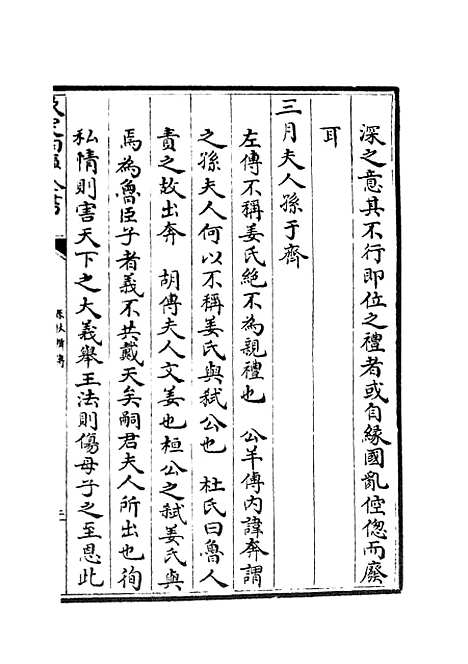 深之意其不行即位之禮者或自緣國亂倥偬而廢
耳
三月夫人孫于齊
左傳不稱姜氏絶不為親禮也　公羊傳内諱奔謂
之孫夫人何以不稱姜氏與弑公也　杜氏曰魯人
責之故出奔　胡傳夫人文姜也桓公之弑姜氏與
焉為魯臣子者義不共戴天矣嗣君夫人所出也徇
私情則害天下之大義舉王法則傷母子之至恩此